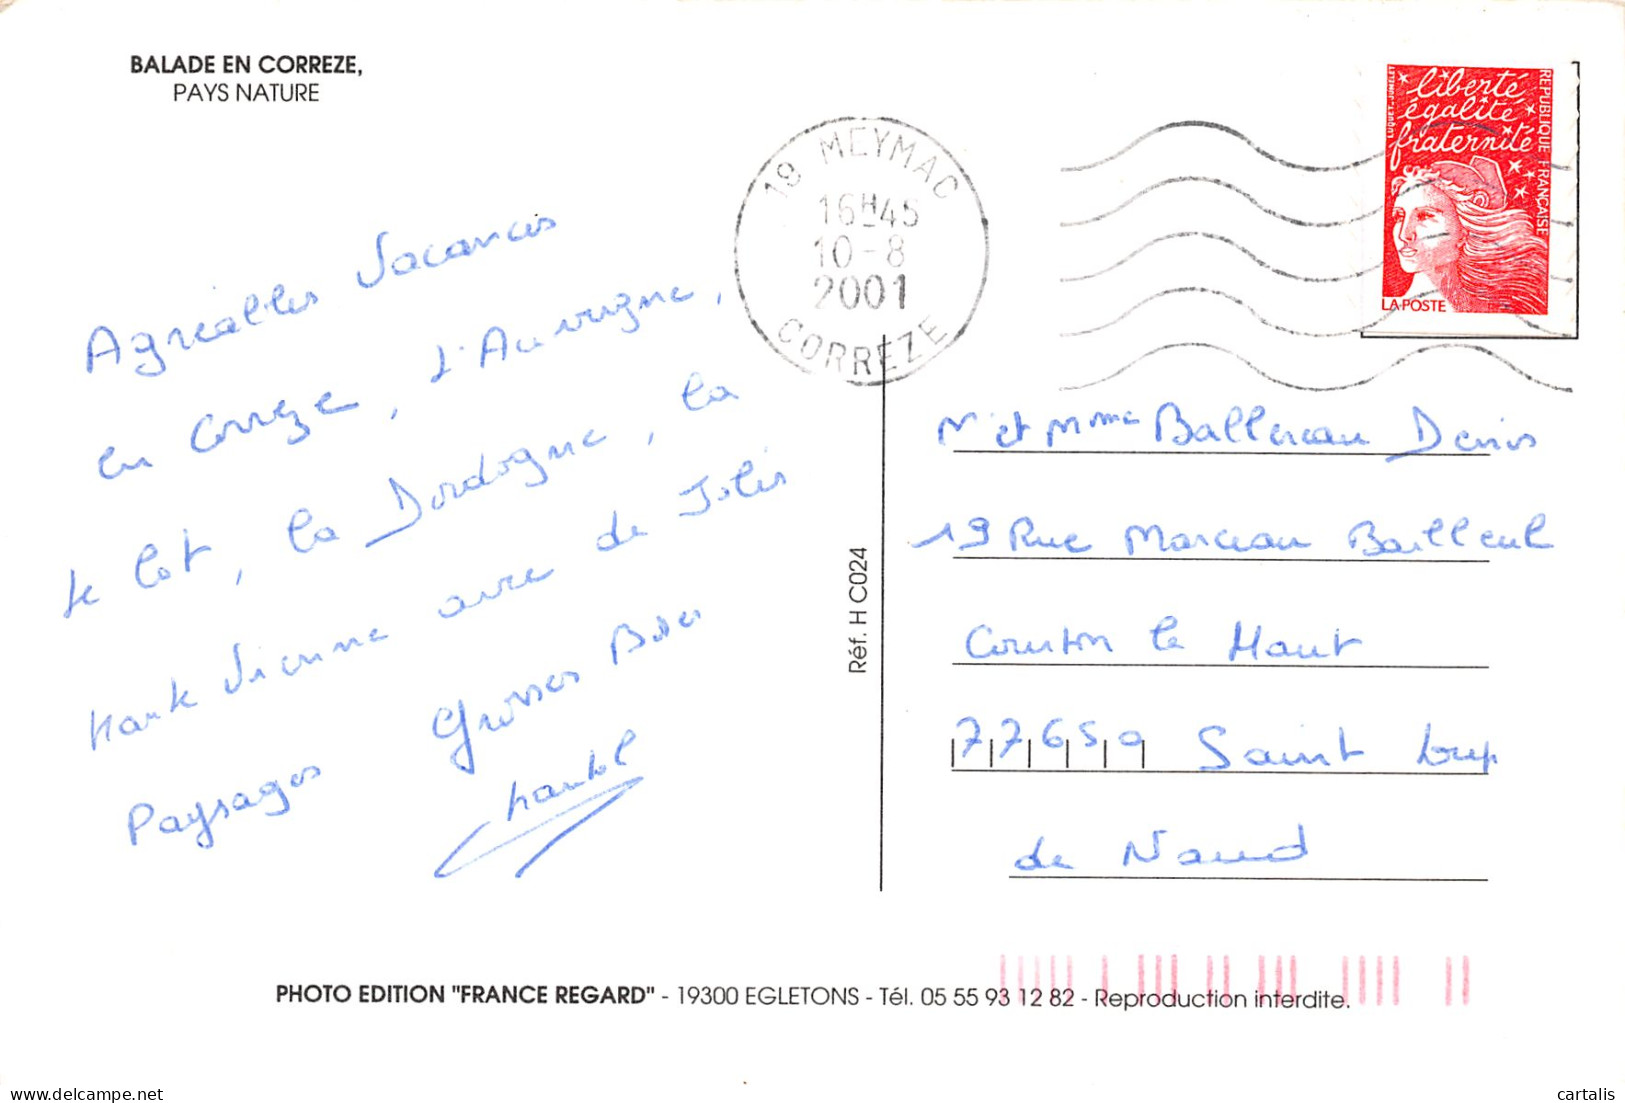 BALADE EN CORREZE,
PAYS NATURE
Agréables Vacances
en Corrèze, l'Auvergne,
le Lot, la Dordogne, la
Haute Vienne avec de Jolis
Paysages Grosses Bises
Chantal
19 MEYMAC
16H45
10-8
2001
CORREZE
LUQUET-JUMELET
liberté
égalité
fraternité
REPUBLIQUE FRANÇAISE
LA POSTE
Réf. H C024
Mr et Mme Ballereau Denis
19 Rue Marceau Bailleul
Courton le Haut
77650 Saint Loup
de Naud
PHOTO EDITION "FRANCE REGARD" - 19300 EGLETONS - Tél. 05 55 93 12 82 - Reproduction interdite.
cartalis
delcampe.net